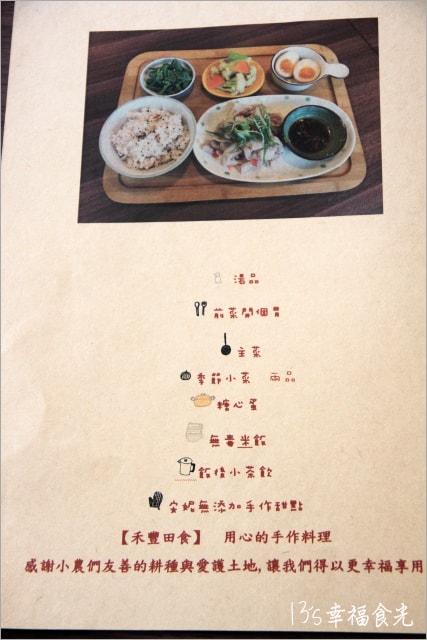 湯品
前菜開個胃
主菜
季節小菜 兩品
糖心蛋
無毒米飯
飯後小茶飲
安妮無添加手作甜點
【禾豐田食】 用心的手作料理
感謝小農們友善的耕種與愛護土地,讓我們得以更幸福享用
13's幸福食光